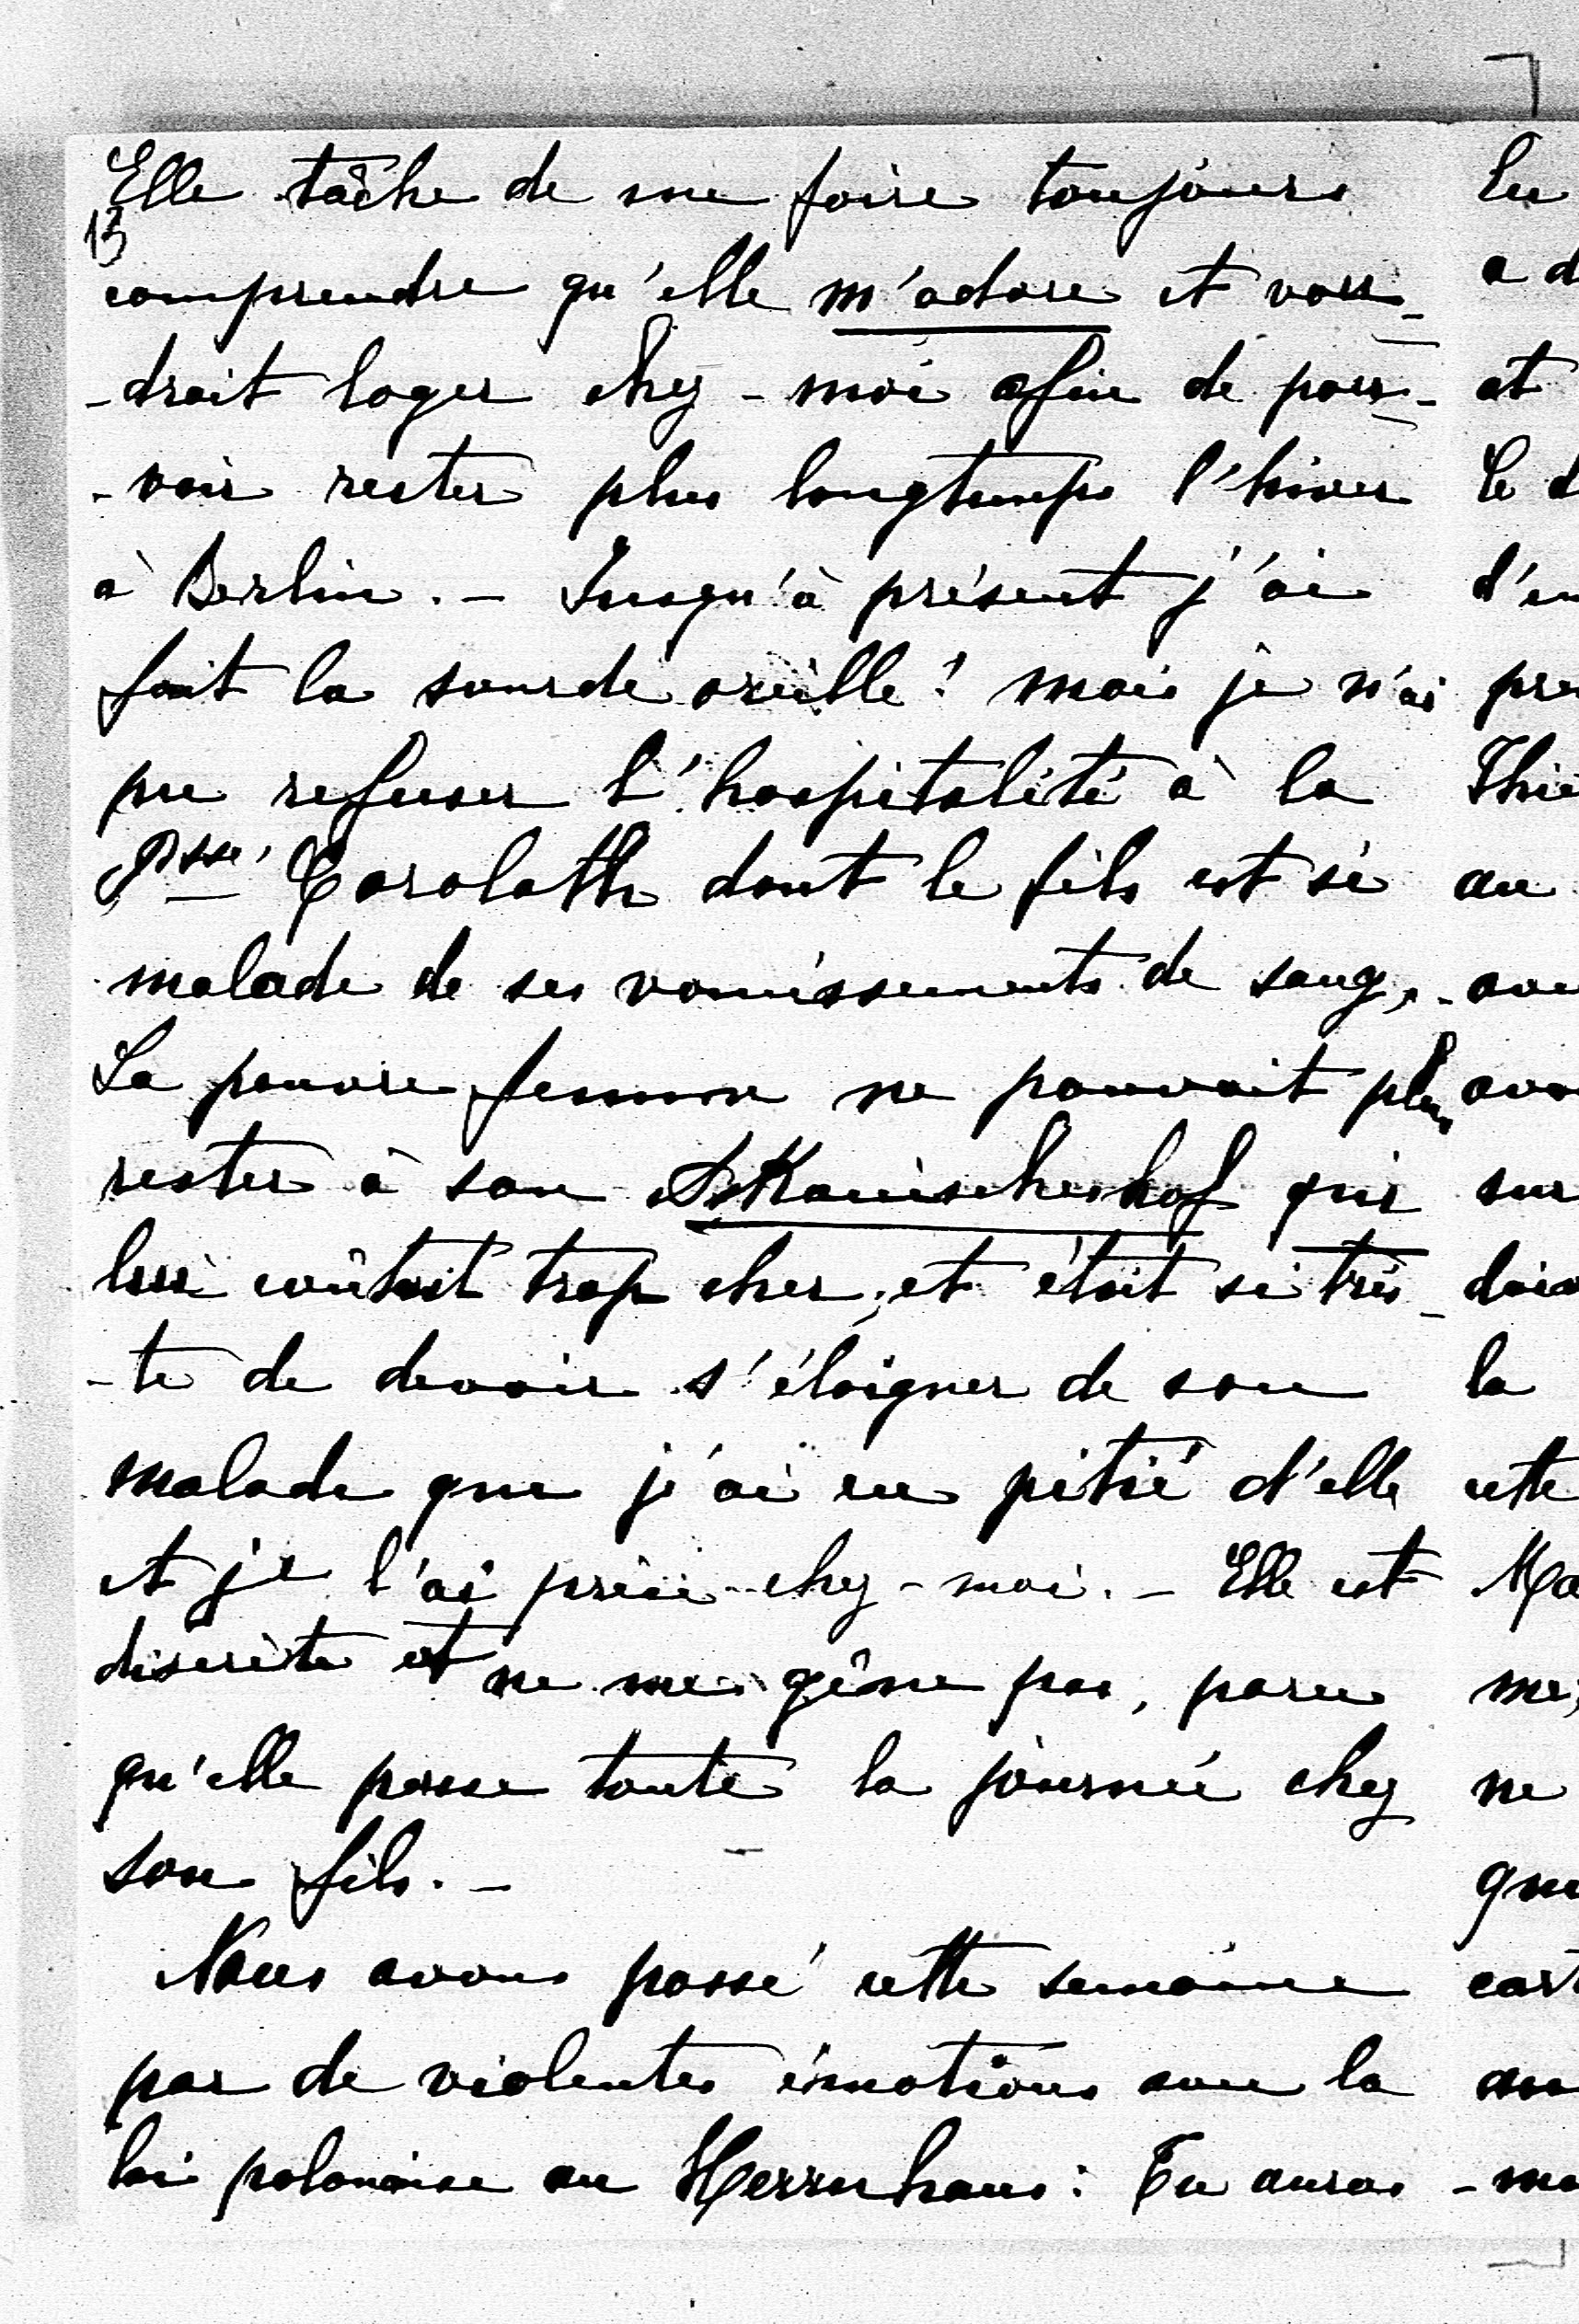 Elle tâche de me faire toujours
13
comprendre qu'elle m'adore et vou-
-drait loger chez-moi afin de pou-
-voir rester plus longtemps l'hiver
à Berlin. - Jusqu'à présent j'ai
fait la sourde oreille! mais je n'ai
pu refuser l'hospitalité à la
Psse Carolath dont le fils est si
malade de ses vomissements de sang,
La pauvre femme ne pouvait plus
rester à son qui
lui coûtait trop cher, et était si tris-
-te de devoir s'éloigner de son
malade que j'ai eu pitié d'elle
et je l'ai priée chez-moi. - Elle est
discrète et ne me gêne pas, parce
qu'elle passe toute la journée chez
son fils. -
Nous avons passé cette semaine
par de violentes émotions avec la
loi polonaise au Herrnhaus: Tu auras